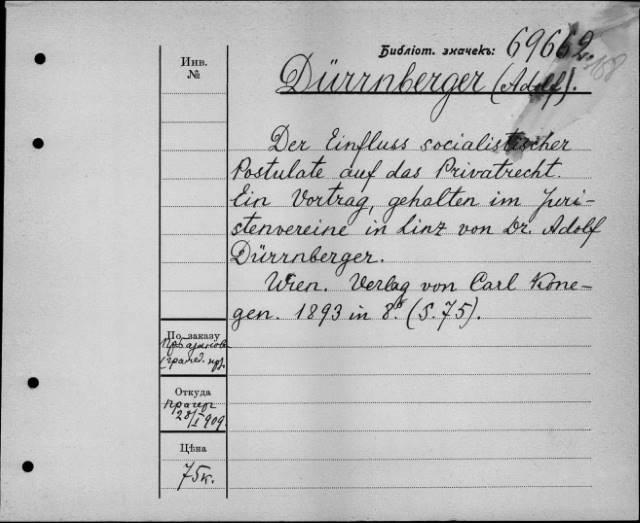 Библіот. значекъ: 69662
Инв.
№
Dürrnberger (Adolf).
Der Einfluss socialistischer
Postulate auf das Privatrecht.
Ein Vortrag, gehalten im Juri-
stenvereine in Linz von Dr. Adolf
Dürrnberger.
Wien. Verlag von Carl Kone-
gen. 1893 in 8º. (S. 75).
По заказу
Откуда
28/I 909.
Цѣна
75к.